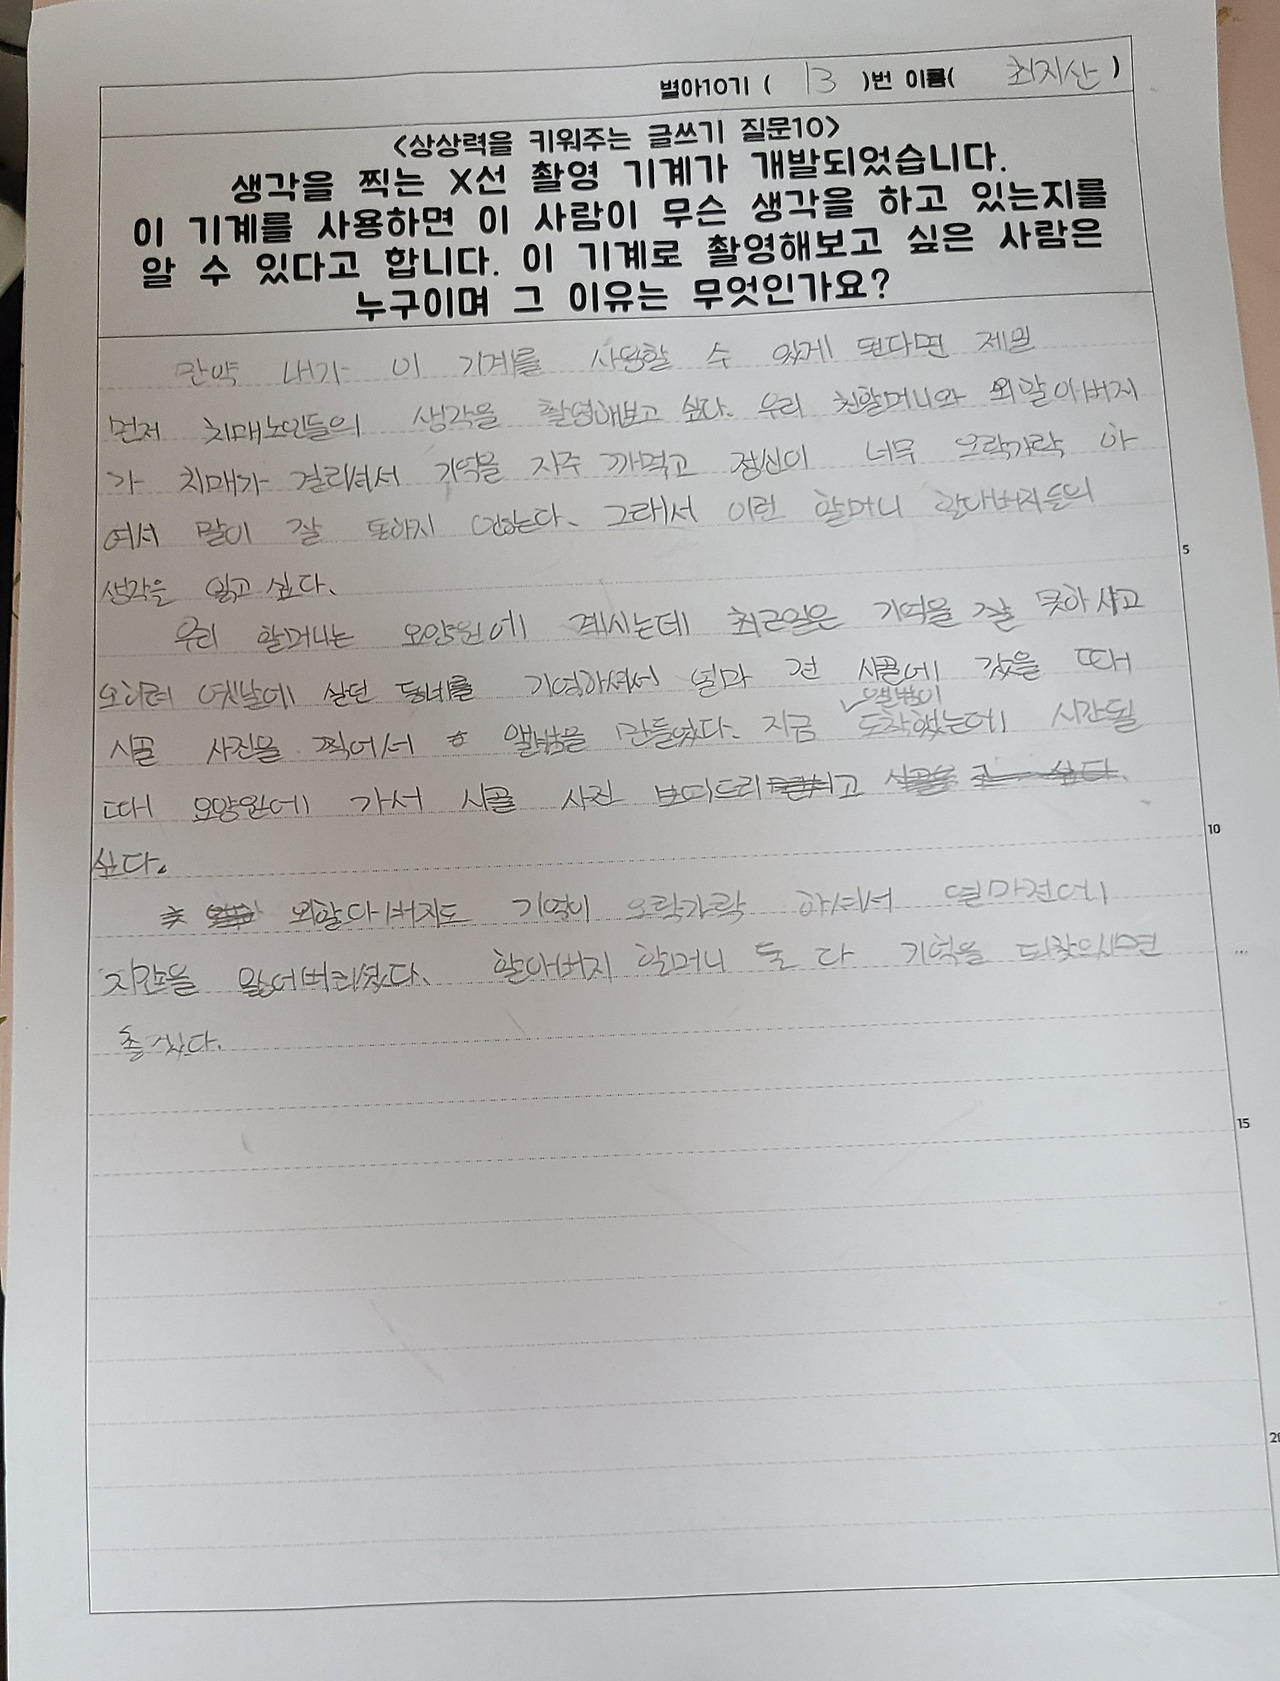 별아10기 ( 13 )번 이름( 최지산 )
<상상력을 키워주는 글쓰기 질문10>
생각을 찍는 X선 촬영 기계가 개발되었습니다.
이 기계를 사용하면 이 사람이 무슨 생각을 하고 있는지를
알 수 있다고 합니다. 이 기계로 촬영해보고 싶은 사람은
누구이며 그 이유는 무엇인가요?
만약 내가 이 기계를 사용할 수 있게 된다면 제일
먼저 치매노인들의 생각을 촬영해보고 싶다. 우리 친할머니와 외할아버지
가 치매가 걸리셔서 기억을 자주 까먹고 정신이 너무 오락가락 하
여서 말이 잘 통하지 않는다. 그래서 이런 할머니 할아버지들의
5
생각을 읽고 싶다.
우리 할머니는 요양원에 계시는데 최근일은 기억을 잘 못하시고
오히려 옛날에 살던 동네를 기억하셔서 얼마 전 시골에 갔을 때
앨범이
시골 사진을 찍어서 앨범을 만들었다. 지금 도착했는데 시간될
때 요양원에 가서 시골 사진 보여드리고
10
싶다.
외할아버지도 기억이 오락가락 하셔서 얼마전에
지갑을 잃어버리셨다. 할아버지 할머니 둘 다 기억을 되찾으시면
좋겠다.
15
20